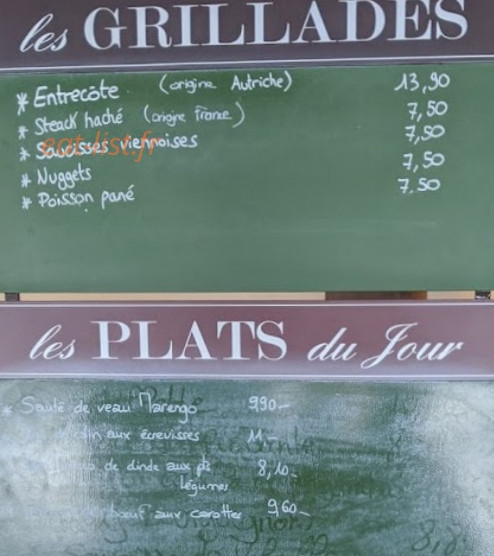 les GRILLADES
* Entrecôte (origine Autriche) 13,90
* Steack haché (origine France) 7,50
* Saucisses viennoises 7,50
eat-list.fr
* Nuggets 7,50
* Poisson pané 7,50
les PLATS du Jour
* Sauté de veau Marengo 9,90-
aux écrevisses 11-
de dinde aux pts 8,10-
légumes
boeuf aux carottes 9,60-